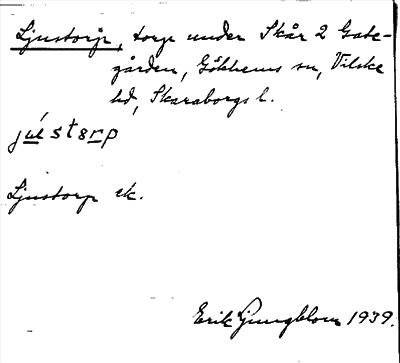 Ljustorp, torp under Skår 2 Gate-
gården, Gökhems sn, Vilske
hd, Skaraborgs l.
jústorp
Ljustorp ek.
Erik Ljungblom 1939.